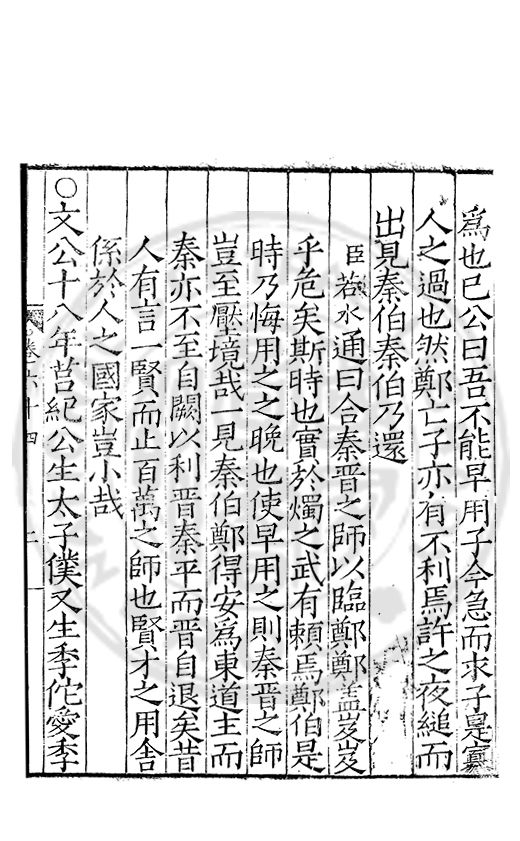 爲也已公曰吾不能早用子今急而求子是寡
人之過也然鄭亡子亦有不利焉許之夜縋而
出見秦伯秦伯乃還
臣若水通曰合秦晉之師以臨鄭鄭盖岌岌
乎危矣斯時也實於燭之武有頼焉鄭伯是
時乃悔用之之晚也使早用之則秦晉之師
豈至壓境哉一見秦伯鄭得安爲東道主而
秦亦不至自闕以利晉秦平而晉自退矣昔
人有言一賢而止百萬之師也賢才之用舎
係於人之國家豈小哉
○文公十八年莒紀公生太子僕又生季佗愛季
卷六十四